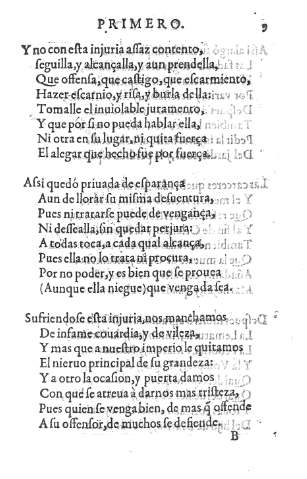 PRIMERO. 9
Y no con esta injuria assaz contento,
seguilla, y alcançalla, y aun prendella,
Que offensa, que castigo, que escarmiento,
Hazer escarnio, y risa, y burla della:
Tomalle el inuiolable juramento,
Y que por si no pueda hablar ella,
Ni otra en su lugar, ni quita fuerça
El alegar que hecho fue por fuerça.
Assi quedó priuada de esparança
Aun de llorar su misma desuentura,
Pues ni tratarse puede de vengança,
Ni dessealla, sin quedar perjura:
A todas toca, a cada qual alcança,
Pues ella no lo trata ni procura,
Por no poder, y es bien que se prouea
(Aunque ella niegue) que vengada sea.
Sufriendose esta injuria, nos manchamos
De infame couardia, y de vileza,
Y mas que a nuestro imperio le quitamos
El nieruo principal de su grandeza:
Y a otro la ocasion, y puerta damos
Con que se atreua a darnos mas tristeza,
Pues quien se venga bien, de mas q̃ offende
A su offensor, de muchos se defiende.
B